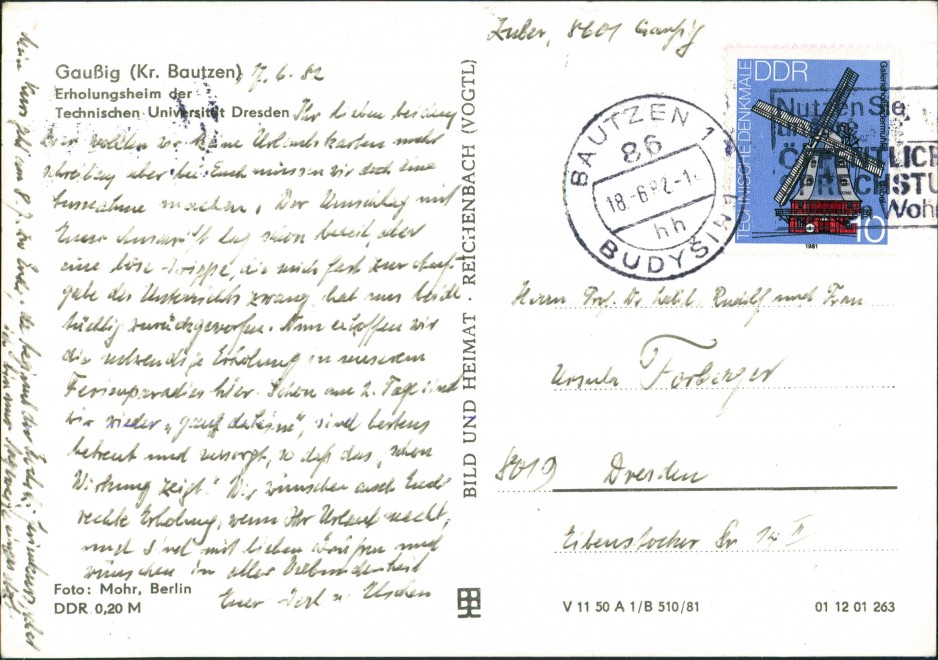 Gaußig (Kr. Bautzen) 17.6.82
Erholungsheim der
Technischen Universität Dresden
Ihr Lieben beiden,
wollten wir keine Urlaubskarten mehr
schreiben, aber bei Euch müssen wir doch eine
Ausnahme machen. Der Umschlag mit
Eurer Anschrift lag schon bereit, aber
eine böse Grippe, die mich fast zur Auf-
gabe des Unterrichts zwang, hat uns beide
tüchtig zurückgeworfen. Nun erhoffen wir
die notwendige Erholung in unserem
Ferienparadies hier. Schon am 2. Tag sind
wir wieder „ganz daheim“, sind bestens
betreut und versorgt, so daß das „schon
Wirkung zeigt“. Wir wünschen auch Euch
rechte Erholung, wenn Ihr Urlaub macht,
und sind mit lieben Grüßen und
wünschen in aller Verbundenheit
Euer u. Uschen
Mein Kurs geht am 8.7. zu Ende, da beginnt der
Foto: Mohr, Berlin
DDR 0,20 M
BILD UND HEIMAT · REICHENBACH (VOGTL)
8601 Gaußig
BAUTZEN 1
86
18.-6.82-1
hh
BUDYŠIN
DDR
TECHNISCHE DENKMALE
10
1981
Nutzen Sie,
ÖFFENTLICH
SPRECHSTU
Wohn
Herrn Prof. Dr. habil. Rudolf und Frau
Ursula Forberger
8019 Dresden
Eibenstocker Str.
V 11 50 A 1/B 510/81
01 12 01 263